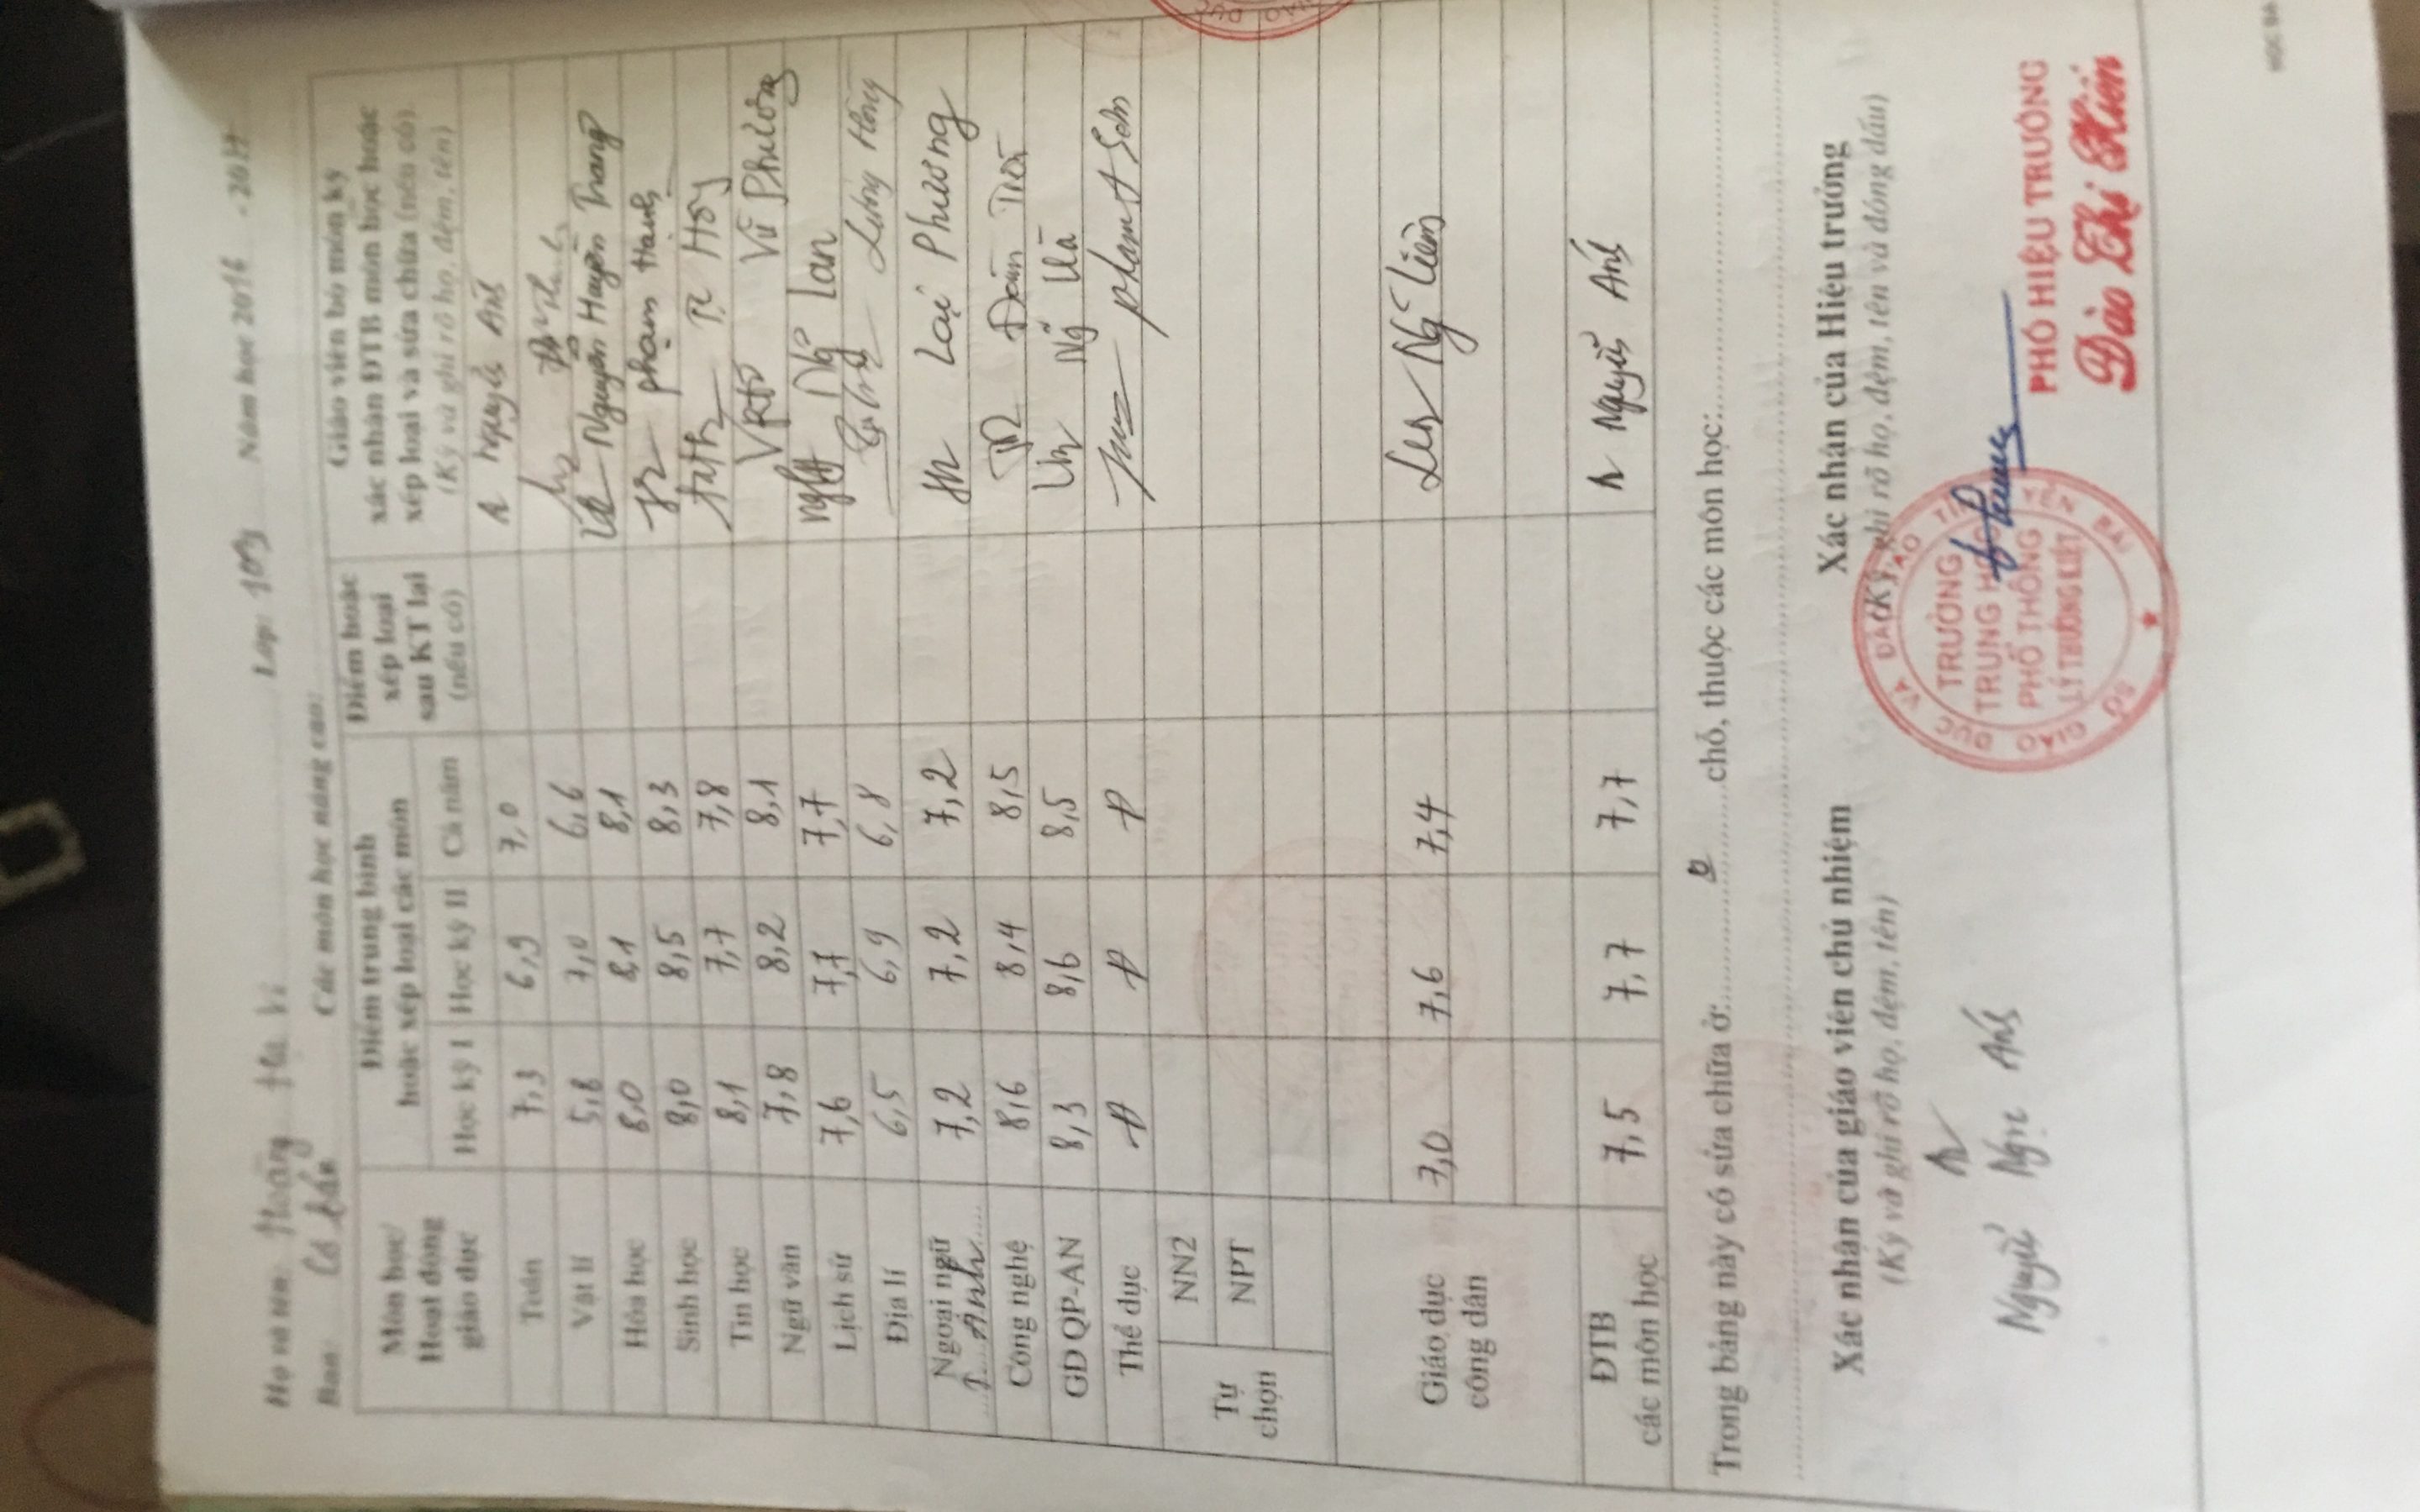 Họ và tên: Hoàng Hạ Vi Lớp: 10 Năm học 2016 - 2017
Ban: Cơ bản Các môn học nâng cao:
Môn học/ Hoạt động giáo dục
Điểm trung bình hoặc xếp loại các môn
Điểm hoặc xếp loại sau KT lại (nếu có)
Giáo viên bộ môn ký xác nhận ĐTB môn học hoặc xếp loại và sửa chữa (nếu có)
(Ký và ghi rõ họ, đệm, tên)
Học kỳ I Học kỳ II Cả năm
Toán 7,3 6,9 7,0 Nguyễn Ánh
Vật lí 5,8 7,0 6,6
Hóa học 8,0 8,1 8,1 Nguyễn Huyền Trang
Sinh học 8,0 8,5 8,3 Phạm Hạnh
Tin học 8,1 7,7 7,8
Ngữ văn 7,8 8,2 8,1 Vũ Phương
Lịch sử 7,6 7,7 7,7 Ng~ Lan
Địa lí 6,5 6,9 6,8 Lương Hồng
Ngoại ngữ T. Anh 7,2 7,2 7,2 Lại Phương
Công nghệ 8,6 8,4 8,5
GD QP-AN 8,3 8,6 8,5
Thể dục Đ Đ Đ
Tự chọn
NN2
NPT
Giáo dục công dân 7,0 7,6 7,4 Ng~ Liên
ĐTB các môn học 7,5 7,7 7,7 Nguyễn Ánh
Trong bảng này có sửa chữa ở: 0 chỗ, thuộc các môn học:
Xác nhận của giáo viên chủ nhiệm
(Ký và ghi rõ họ, đệm, tên)
Nguyễn Ngọc Ánh
Xác nhận của Hiệu trưởng
(Ký, ghi rõ họ, đệm, tên và đóng dấu)
SỞ GIÁO DỤC VÀ ĐÀO TẠO TỈNH YÊN BÁI
TRƯỜNG
TRUNG HỌC
PHỔ THÔNG
LÝ THƯỜNG KIỆT
PHÓ HIỆU TRƯỞNG
Đào Thị Hiền